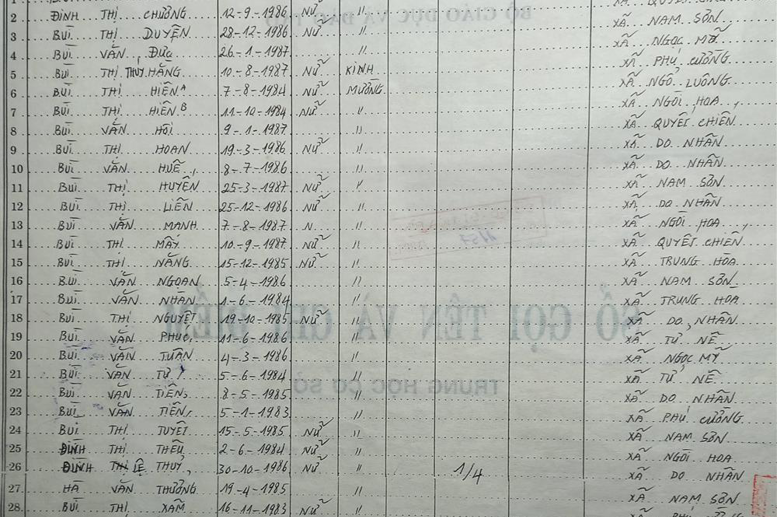 2 ĐINH THỊ CHƯỞNG 12-9-1986 NỮ " XÃ NAM SƠN
3 BÙI THỊ DUYÊN 28-12-1986 NỮ " XÃ NGỌC MỸ
4 BÙI VĂN ĐỨC 26-1-1987 " XÃ PHÚ CƯỜNG
5 BÙI THỊ THUÝ HẰNG 10-8-1987 NỮ KINH XÃ NGỔ LUÔNG
6 BÙI THỊ HIỀN A 7-8-1984 NỮ MƯỜNG XÃ NGÒI HOA
7 BÙI THỊ HIỀN B 11-10-1984 NỮ " XÃ QUYẾT CHIẾN
8 BÙI VĂN HỒI 9-1-1987 " XÃ DO NHÂN
9 BÙI THỊ HOAN 19-3-1986 NỮ " XÃ DO NHÂN
10 BÙI VĂN HUẾ 8-7-1986 " XÃ NAM SƠN
11 BÙI THỊ HUYỀN 25-3-1987 NỮ " XÃ DO NHÂN
12 BÙI THỊ LIÊN 25-12-1986 NỮ " XÃ NGÒI HOA
13 BÙI VĂN MẠNH 7-8-1987 N " XÃ QUYẾT CHIẾN
14 BÙI THỊ MÂY 10-9-1987 NỮ " XÃ TRUNG HÒA
15 BÙI THỊ NĂNG 15-12-1985 NỮ " XÃ NAM SƠN
16 BÙI VĂN NGOAN 5-4-1986 " XÃ TRUNG HÒA
17 BÙI VĂN NHÂN 1-6-1984 " XÃ DO NHÂN
18 BÙI THỊ NGUYỆT 19-10-1985 NỮ " XÃ TỬ NÊ
19 BÙI VĂN PHÚC 11-6-1986 " XÃ NGỌC MỸ
20 BÙI VĂN TUÂN 4-3-1986 " XÃ TỬ NÊ
21 BÙI VĂN TƯ 5-6-1984 " XÃ DO NHÂN
22 BÙI VĂN TIẾN 8-5-1985 " XÃ PHÚ CƯỜNG
23 BÙI VĂN TIẾN 5-1-1983 " XÃ NAM SƠN
24 BÙI THỊ TUYẾT 15-5-1985 NỮ " XÃ NGÒI HOA
25 ĐINH THỊ THÊU 2-6-1984 NỮ " XÃ DO NHÂN
26 ĐINH THỊ LỆ THUỶ 30-10-1986 NỮ " 1/4 XÃ NAM SƠN
27 HÀ VĂN THƯỞNG 19-4-1985 "
28 BÙI THỊ XÁM 16-11-1983 NỮ "